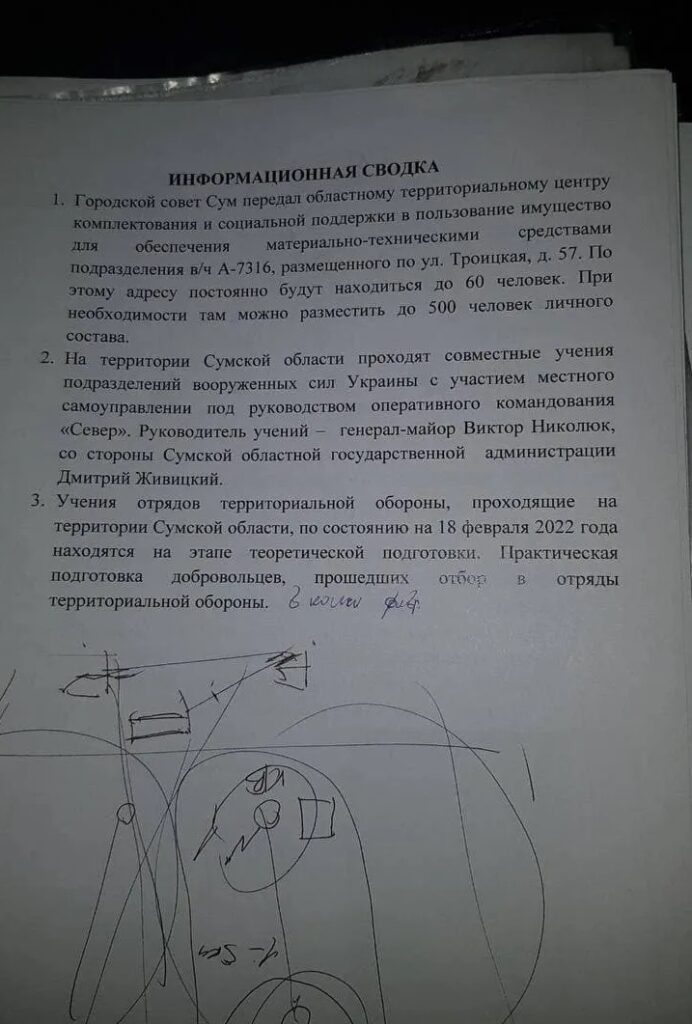 ИНФОРМАЦИОННАЯ СВОДКА
1. Городской совет Сум передал областному территориальному центру
комплектования и социальной поддержки в пользование имущество
для обеспечения материально-техническими средствами
подразделения в/ч А-7316, размещенного по ул. Троицкая, д. 57. По
этому адресу постоянно будут находиться до 60 человек. При
необходимости там можно разместить до 500 человек личного
состава.
2. На территории Сумской области проходят совместные учения
подразделений вооруженных сил Украины с участием местного
самоуправлении под руководством оперативного командования
«Север». Руководитель учений – генерал-майор Виктор Николюк,
со стороны Сумской областной государственной администрации
Дмитрий Живицкий.
3. Учения отрядов территориальной обороны, проходящие на
территории Сумской области, по состоянию на 18 февраля 2022 года
находятся на этапе теоретической подготовки. Практическая
подготовка добровольцев, прошедших отбор в отряды
территориальной обороны. в